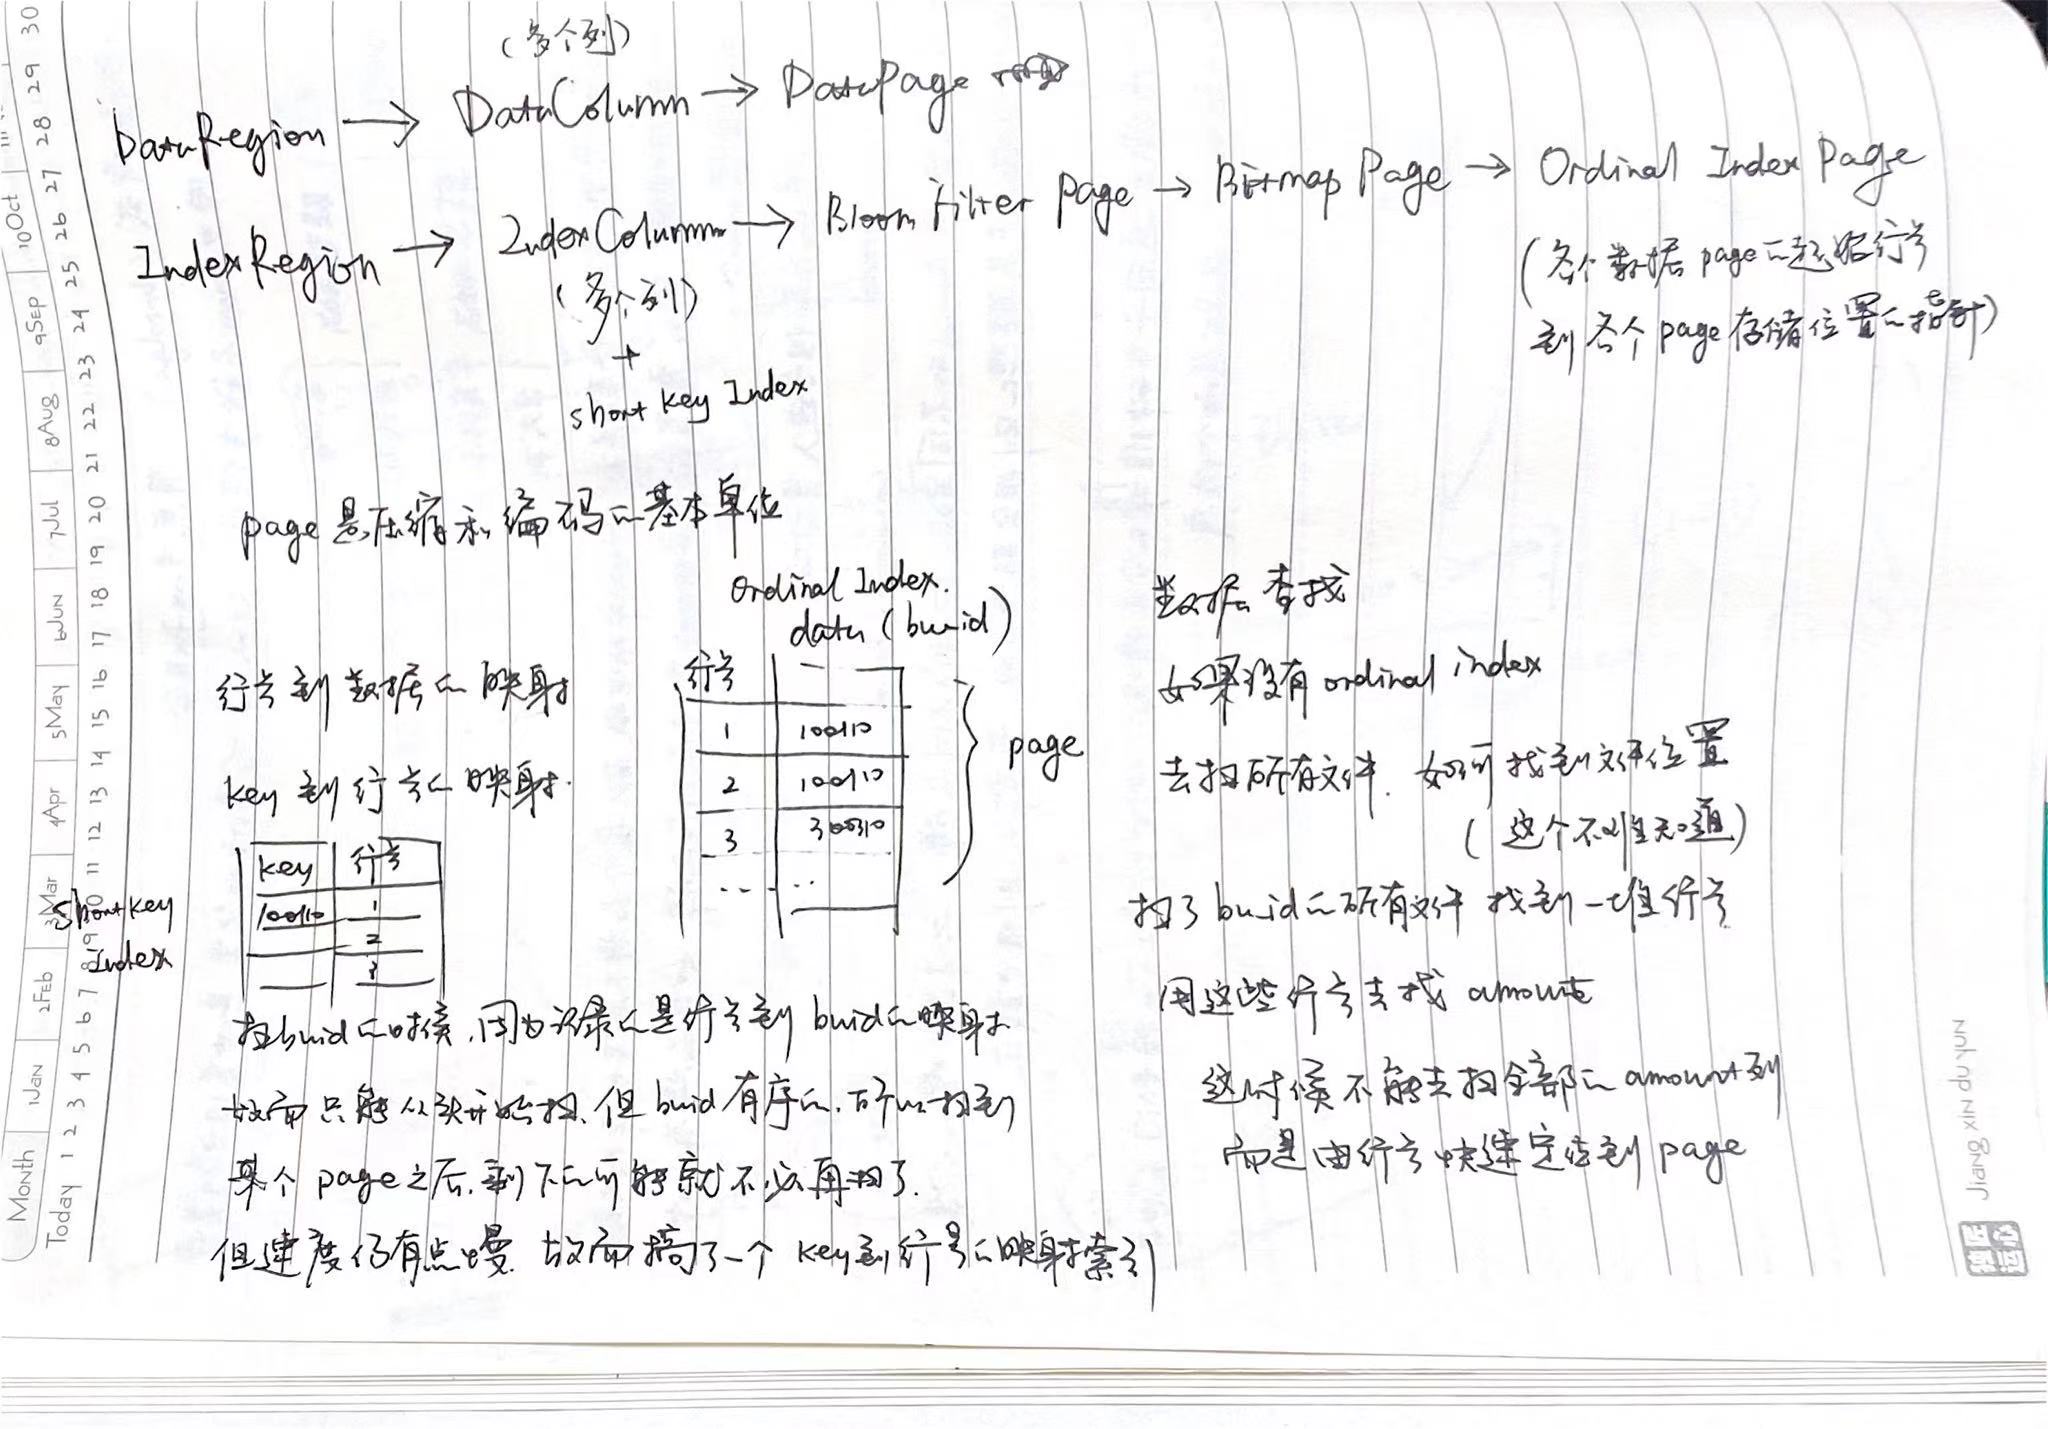 (多个列)
DataRegion → DataColumn → DataPage
IndexRegion → IndexColumn → Bloom Filter Page → Bitmap Page → Ordinal Index Page
(多个列)
+
short key Index
(各个数据page的起始行号
到各个page存储位置的指针)
page是压缩和编码的基本单位
行号到数据的映射
key到行号的映射.
short key
index
key 行号
100110 1
2
3
Ordinal Index.
data (buid)
行号
1 100110
2 100110
3 300310
... ..
page
扫buid的时候,因为记录的是行号到buid的映射.
故而只能从头开始扫.但buid有序的.所以扫到
某个page之后.剩下的可能就不必再扫了.
但速度仍有点慢.故而搞了一个key到行号的映射索引
数据查找
如果没有ordinal index
去扫所有文件.如何找到文件位置
(这个不难知道)
扫了buid的所有文件 找到一堆行号.
用这些行号去找 amount
这时候不能去扫全部的amount列
而是由行号快速定位到page
Month 1Jan 2Feb 3Mar 4Apr 5May 6Jun 7Jul 8Aug 9Sep 10Oct
Today 1 2 3 4 5 6 7 8 9 10 11 12 13 14 15 16 17 18 19 20 21 22 23 24 25 26 27 28 29 30
Jiang xin du yun